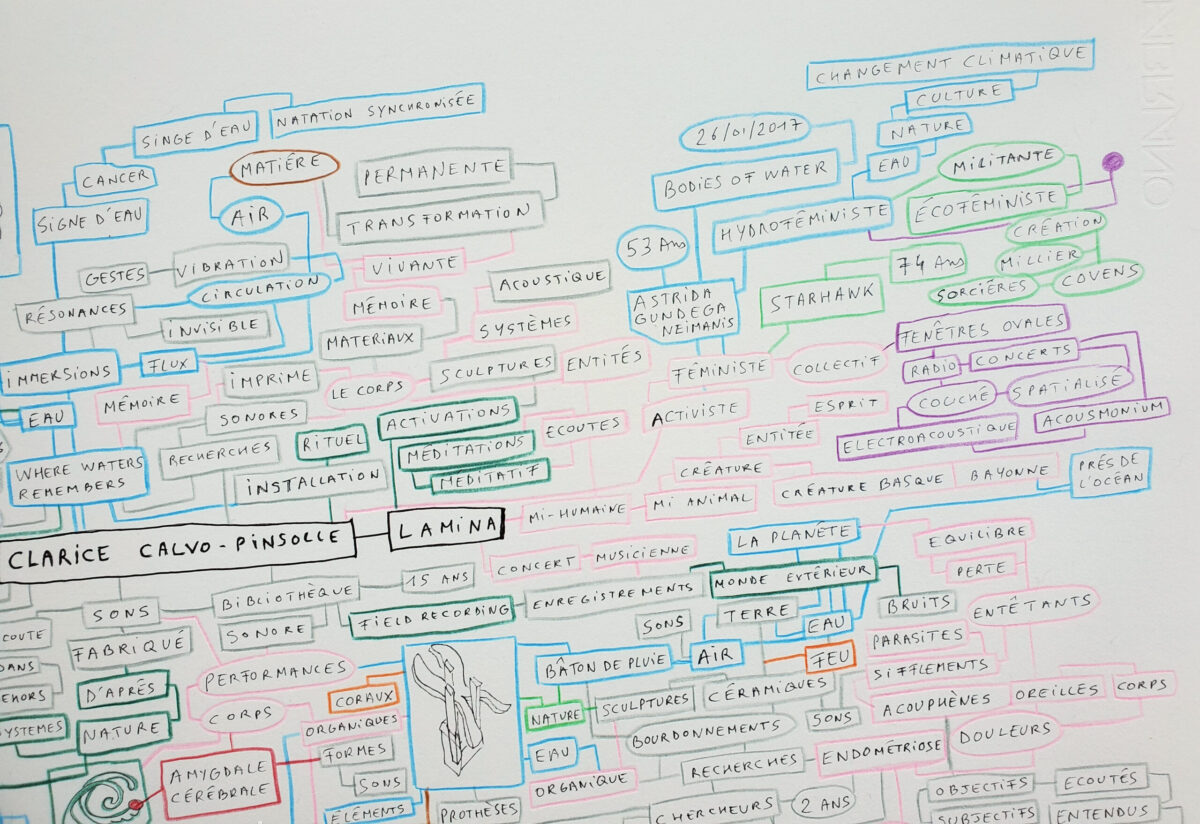 CHANGEMENT CLIMATIQUE
CULTURE
NATURE
EAU
NATATION SYNCHRONISÉE
SINGE D'EAU
CANCER
SIGNE D'EAU
MATIÉRE
AIR
PERMANENTE
TRANSFORMATION
VIVANTE
GESTES
VIBRATION
CIRCULATION
RÉSONANCES
INVISIBLE
MÉMOIRE
ACOUSTIQUE
SYSTÈMES
MATERIAUX
26/01/2017
BODIES OF WATER
HYDROFÉMINISTE
53 Ans
ASTRIDA
GUNDEGA
NEIMANIS
MILITANTE
ÉCOFÉMINISTE
CRÉATION
MILLIER
COVENS
SORCIÉRES
74 Ans
STARHAWK
IMMERSIONS
FLUX
MÉMOIRE
IMPRIME
LE CORPS
SCULPTURES
ENTITÉS
FÉMINISTE
COLLECTIF
FENÊTRES OVALES
RADIO
CONCERTS
COUCHÉ
SPATIALISÉ
ACOUSMONIUM
ELECTROACOUSTIQUE
EAU
SONORES
RECHERCHES
RITUEL
ACTIVATIONS
MÉDITATIONS
MEDITATIF
ECOUTES
ACTIVISTE
ESPRIT
ENTITÉE
CRÉATURE
CRÉATURE BASQUE
BAYONNE
PRÉS DE
L'OCÉAN
WHERE WATERS
REMEMBERS
INSTALLATION
MI-HUMAINE
MI ANIMAL
CLARICE CALVO-PINSOLLE
LAMINA
CONCERT
MUSICIENNE
LA PLANÉTE
EQUILIBRE
PERTE
MONDE EXTÉRIEUR
BRUITS
ENTÊTANTS
SONS
BIBLIOTHÈQUE
15 ANS
SONORE
FIELD RECORDING
ENREGISTREMENTS
SONS
TERRE
EAU
AIR
FEU
PARASITES
SIFFLEMENTS
FABRIQUÉ
D'APRÉS
NATURE
PERFORMANCES
CORPS
CORAUX
ORGANIQUES
FORMES
SONS
ÉLÉMENTS
BÂTON DE PLUIE
NATURE
SCULPTURES
CÉRAMIQUES
SONS
BOURDONNEMENTS
EAU
ORGANIQUE
RECHERCHES
ENDOMÉTRIOSE
ACOUPHÈNES
OREILLES
CORPS
DOULEURS
AMYGDALE
CÉRÉBRALE
PROTHÈSES
CHERCHEURS
2 ANS
OBJECTIFS
ECOUTÉS
SUBJECTIFS
ENTENDUS